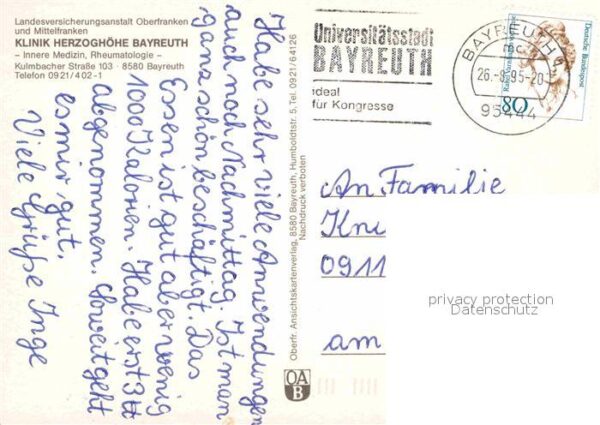 Landesversicherungsanstalt Oberfranken
und Mittelfranken
KLINIK HERZOGHÖHE BAYREUTH
– Innere Medizin, Rheumatologie –
Kulmbacher Straße 103 · 8580 Bayreuth
Telefon 0921/402-1
Habe sehr viele Anwendungen
auch noch Nachmittag. Ist man
ganz schön beschäftigt. Das
Essen ist gut aber wenig
1000 Kalorien. Habe erst 3 tt
abgenommen. Soweit geht
es mir gut.
Viele Grüße Inge
Oberfr. Ansichtskartenverlag, 8580 Bayreuth, Humboldtstr. 5, Tel. 0921/64126
Nachdruck verboten
OA
B
Universitätsstadt
BAYREUTH
ideal
für Kongresse
BAYREUTH 1
mc
26.-9.95-20
95444
Deutsche Bundespost
80
An Familie
Knu
0911
am
privacy protection
Datenschutz